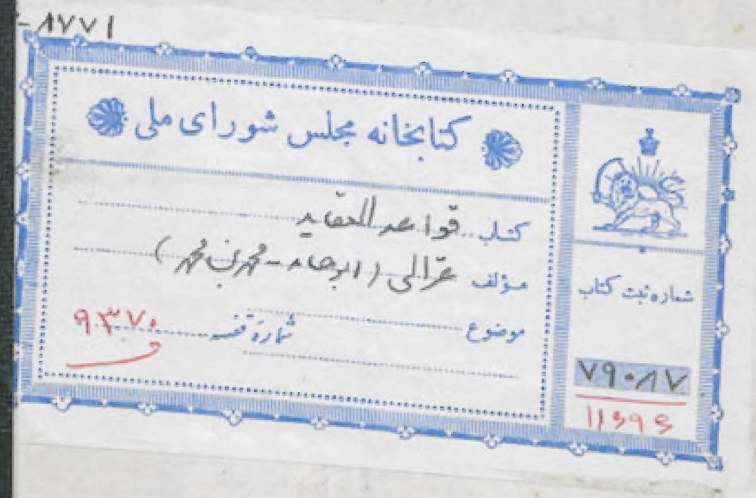 ۸۷۷۱-
کتابخانه مجلس شورای ملی
کتاب قواعد العقاید
مؤلف غزالی (ابوحامد - محمد بن محمد)
موضوع
شمارهٔ قفسه ۹۳۷۰
شماره ثبت کتاب
۷۹۰۸۷